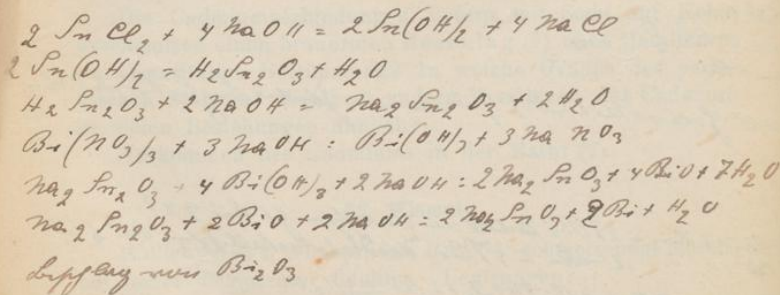 2 SnCl₂ + 4 NaOH = 2 Sn(OH)₂ + 4 NaCl
2 Sn(OH)₂ = H₂Sn₂O₃ + H₂O
H₂Sn₂O₃ + 2 NaOH = Na₂Sn₂O₃ + 2 H₂O
Bi(NO₃)₃ + 3 NaOH : Bi(OH)₃ + 3 Na NO₃
Na₂Sn₂O₃ + 4 Bi(OH)₃ + 2 NaOH : 2 Na₂SnO₃ + 4 BiO + 7 H₂O
Na₂Sn₂O₃ + 2 BiO + 2 NaOH = 2 Na₂SnO₃ + 2 Bi + H₂O
Beschlag von Bi₂O₃